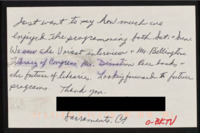 Just want to say how much we
enjoyed the programming both Sat & Sun
We saw the Voisat interview & Mr. Billington
Library of Congress Mr. Bernstein rare books &
the future of libraries. Looking forward to future
programs. Thank you.
Sacramento, CA
O-BKTV